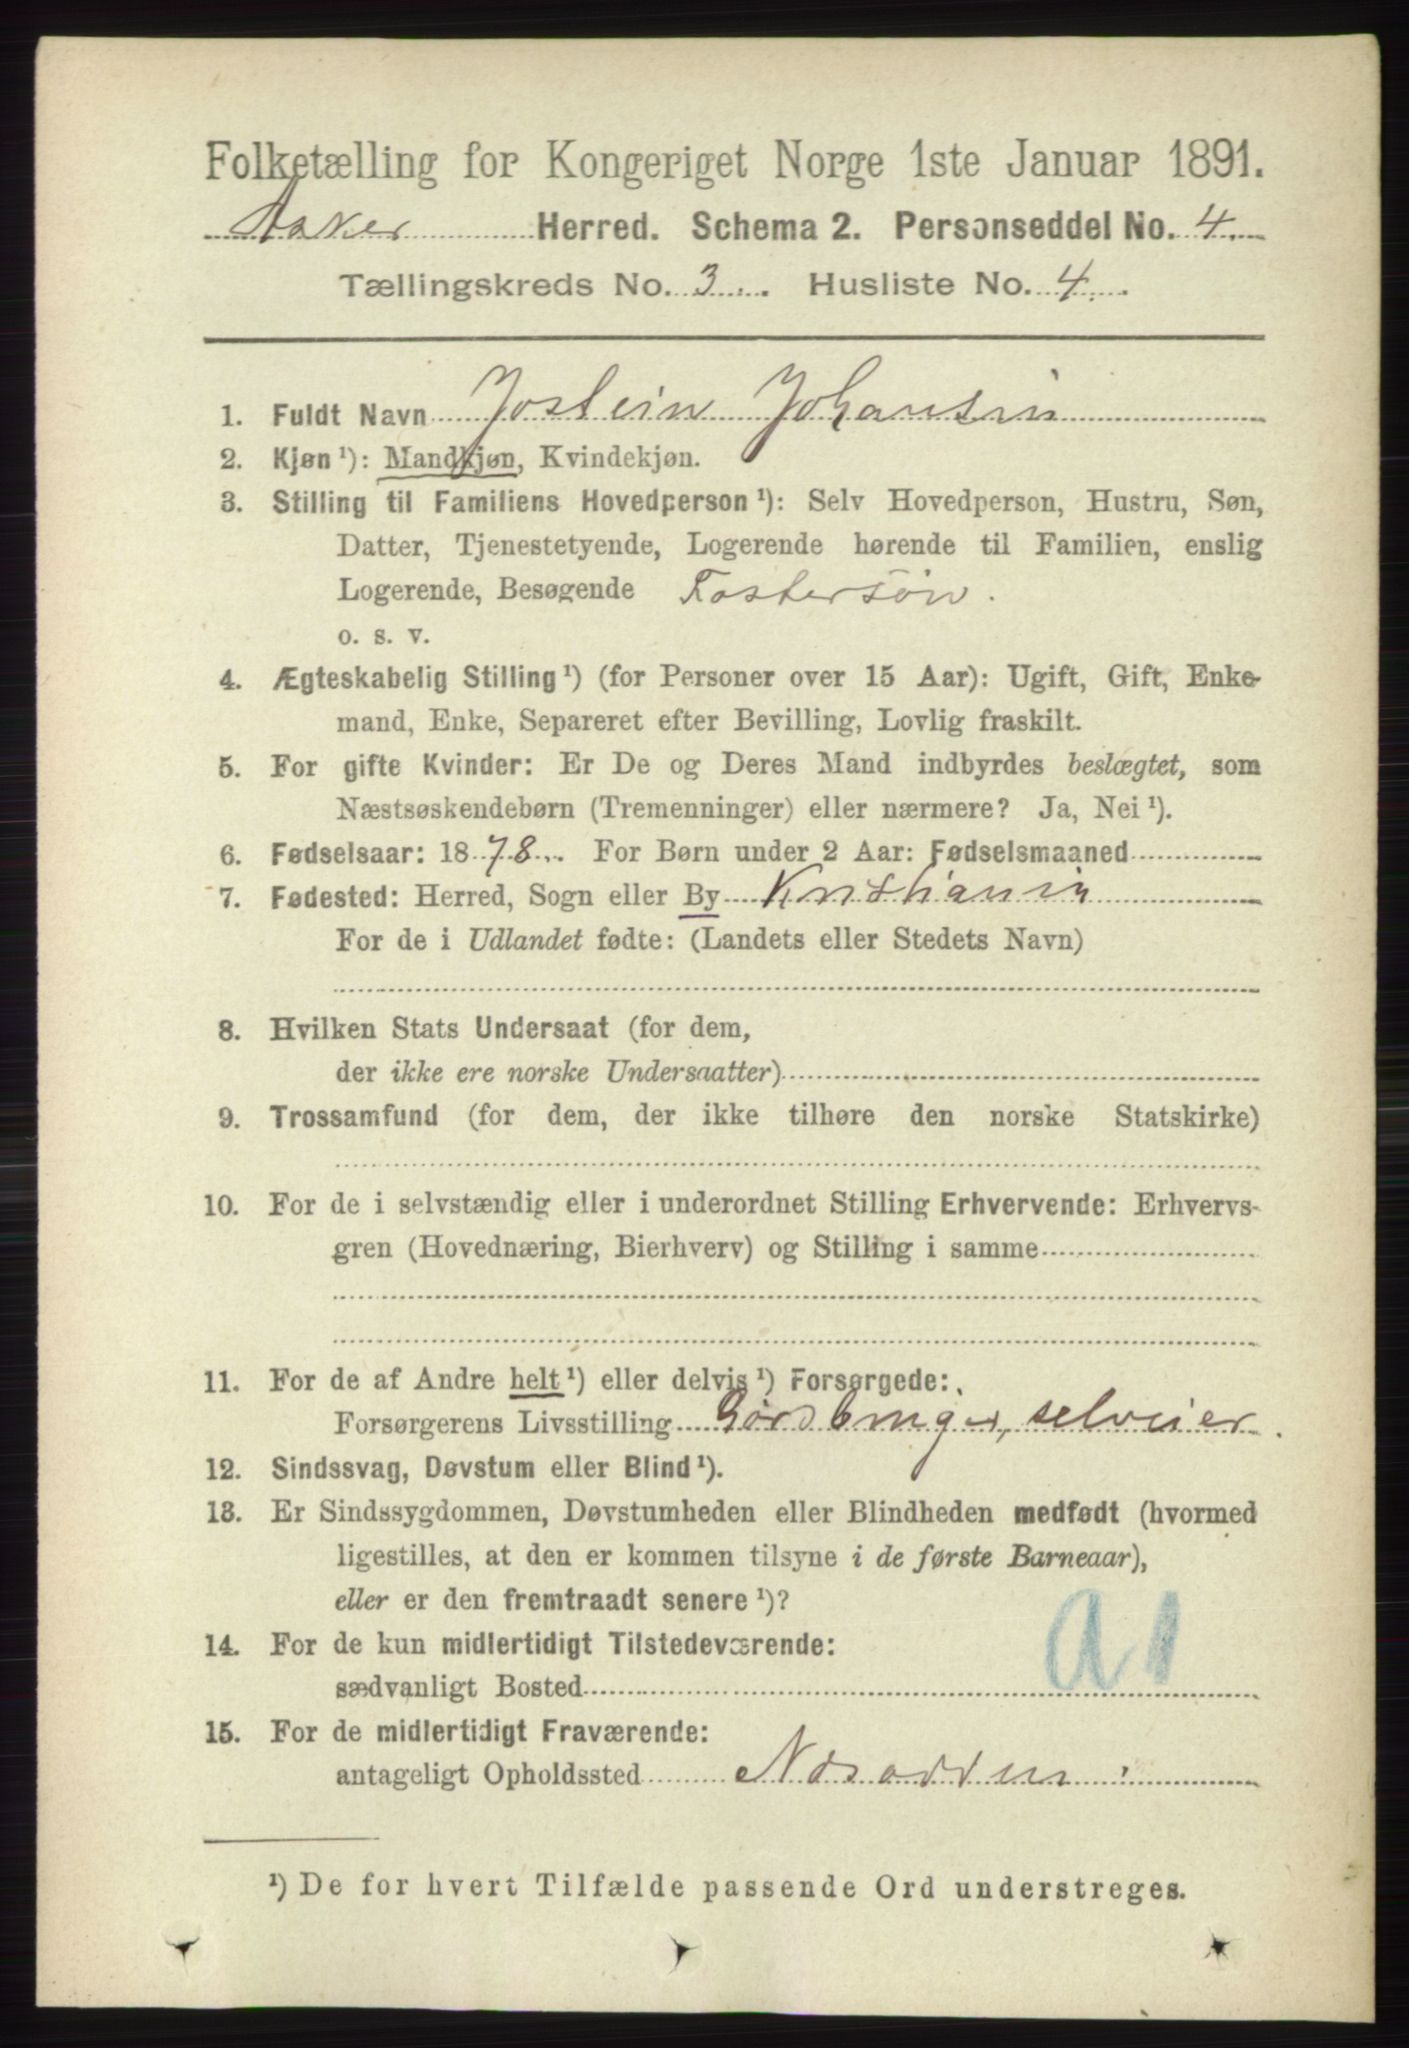 Folketælling for Kongeriget Norge 1ste Januar 1891.
Aaker Herred. Schema 2. Personseddel No. 4.
Tællingskreds No. 3. Husliste No. 4.
1. Fuldt Navn Jostein Johansin
2. Kjøn ¹): Mandkjøn, Kvindekjøn.
3. Stilling til Familiens Hovedperson ¹): Selv Hovedperson, Hustru, Søn,
Datter, Tjenestetyende, Logerende hørende til Familien, enslig
Logerende, Besøgende Fostersøn.
o. s. v.
4. Ægteskabelig Stilling ¹) (for Personer over 15 Aar): Ugift, Gift, Enke-
mand, Enke, Separeret efter Bevilling, Lovlig fraskilt.
5. For gifte Kvinder: Er De og Deres Mand indbyrdes beslægtet, som
Næstsøskendebørn (Tremenninger) eller nærmere? Ja, Nei ¹).
6. Fødselsaar: 1878. For Børn under 2 Aar: Fødselsmaaned
7. Fødested: Herred, Sogn eller By Kristiania
For de i Udlandet fødte: (Landets eller Stedets Navn)
8. Hvilken Stats Undersaat (for dem,
der ikke ere norske Undersaatter)
9. Trossamfund (for dem, der ikke tilhøre den norske Statskirke)
10. For de i selvstændig eller i underordnet Stilling Erhvervende: Erhvervs-
gren (Hovednæring, Bierhverv) og Stilling i samme
11. For de af Andre helt ¹) eller delvis ¹) Forsørgede:
Forsørgerens Livsstilling Gårdbruger, selveier.
12. Sindssvag, Døvstum eller Blind ¹).
13. Er Sindssygdommen, Døvstumheden eller Blindheden medfødt (hvormed
ligestilles, at den er kommen tilsyne i de første Barneaar),
eller er den fremtraadt senere ¹)?
A1
14. For de kun midlertidigt Tilstedeværende:
sædvanligt Bosted
15. For de midlertidigt Fraværende:
antageligt Opholdssted Næsodden
¹) De for hvert Tilfælde passende Ord understreges.